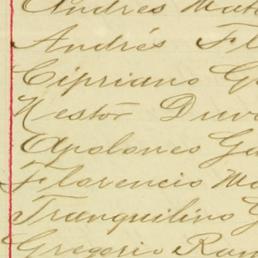 Andres Mat
Andrés Fl
Cipriano G
Nestor Duv
Apolones Ga
Florencio Mo
Tranquilino G
Gregorio Ram